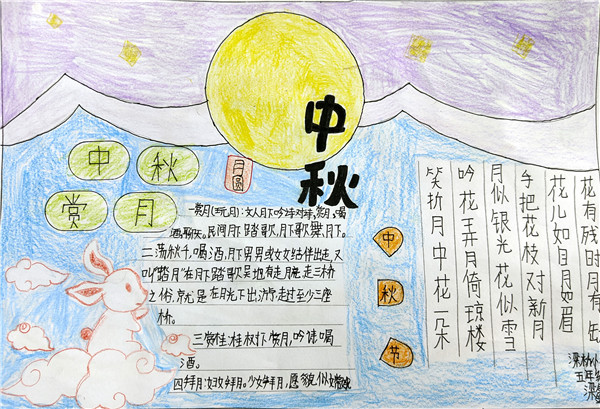 中秋
中秋
赏月
月圆
一.赏月(玩月):文人月下吟诗对诗,赏月,喝
酒,聊天。民间月下踏歌,月下歌舞,月下。
二.荡秋千,喝酒,月下男男或女女结伴出走,又
叫"踏月"在月下踏歌
之俗,尤是在月光下出游走过至少三座
桥。
三.赏桂:桂树下赏月,吟诗喝
酒。
四.拜月:女孩拜月。少女拜月,愿貌似嫦娥
中
秋
节
花有残时月有
花儿如目月如眉
手把花枝对新月
月似银光花似雪
吟花弄月倚琼楼
笑折月中花一朵
五年